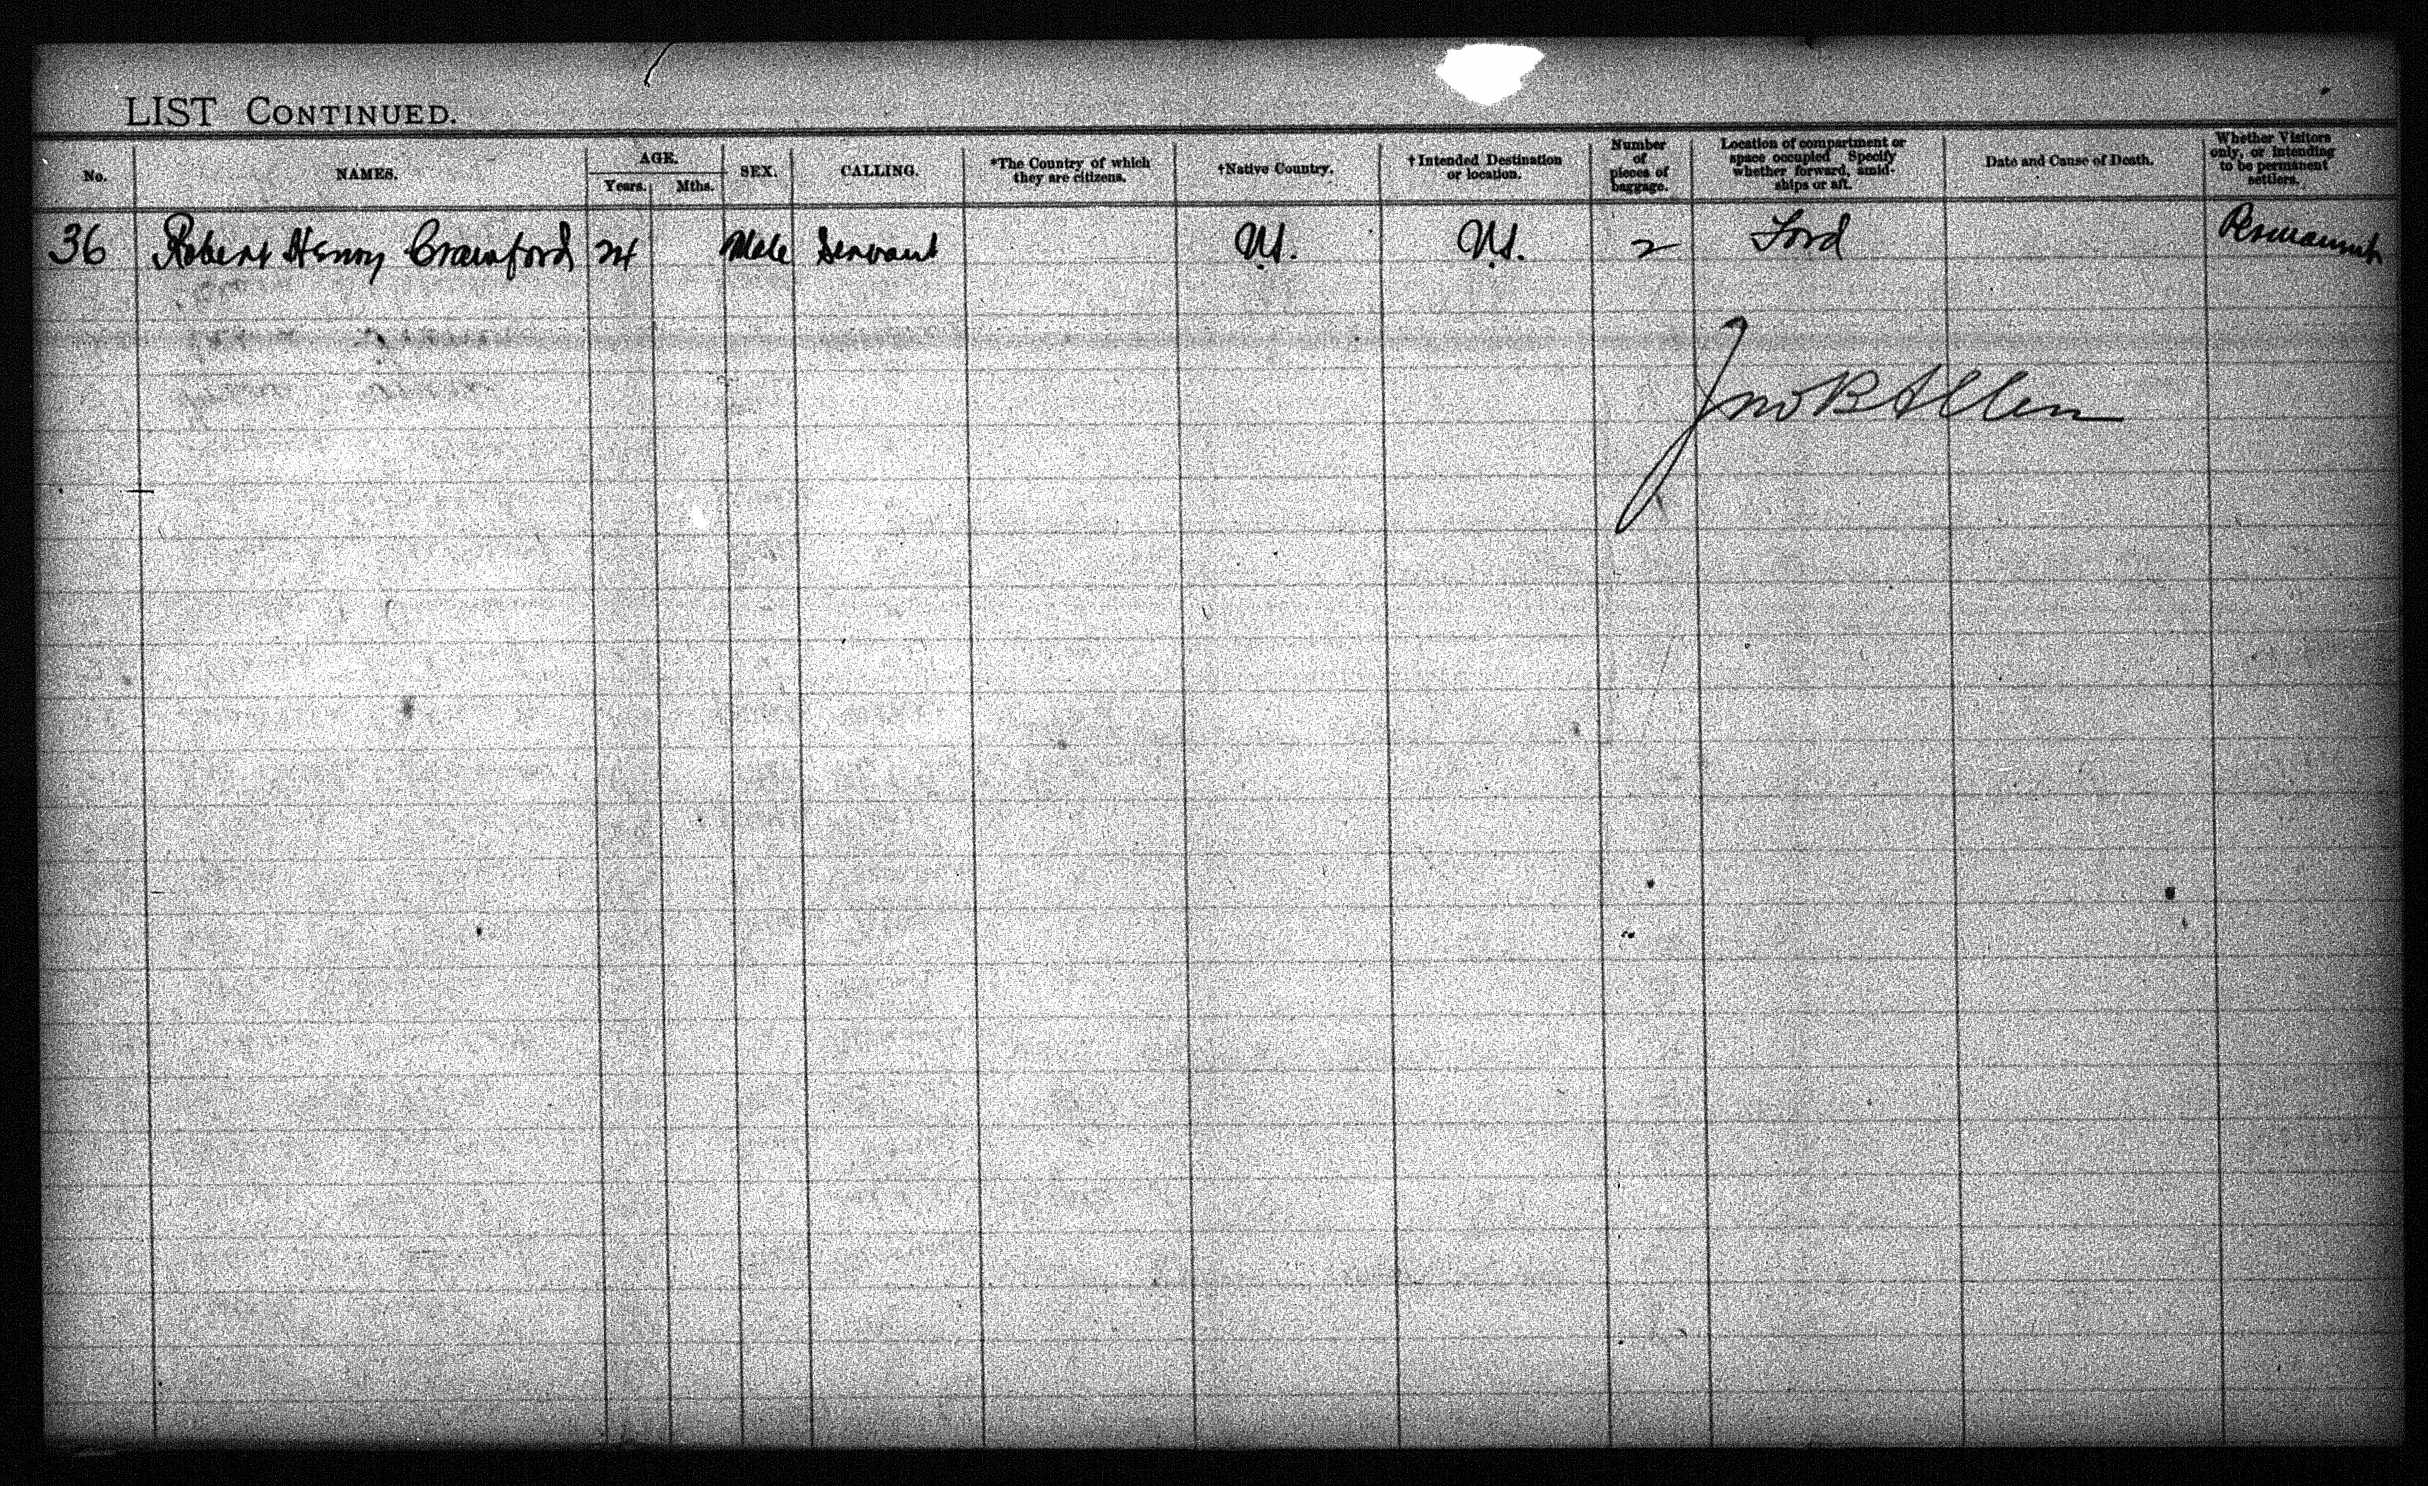 LIST CONTINUED.
No. NAMES. AGE. Years. Mths. SEX. CALLING. *The Country of which they are citizens. †Native Country. †Intended Destination or location. Number of pieces of baggage. Location of compartment or space occupied Specify whether forward, amid-ships or aft. Date and Cause of Death. Whether Visitors only, or intending to be permanent settlers.
36 Robert Henry Crawford 24 Male Servant U.S. U.S. 2 Ford Permanent
Jno B Allen